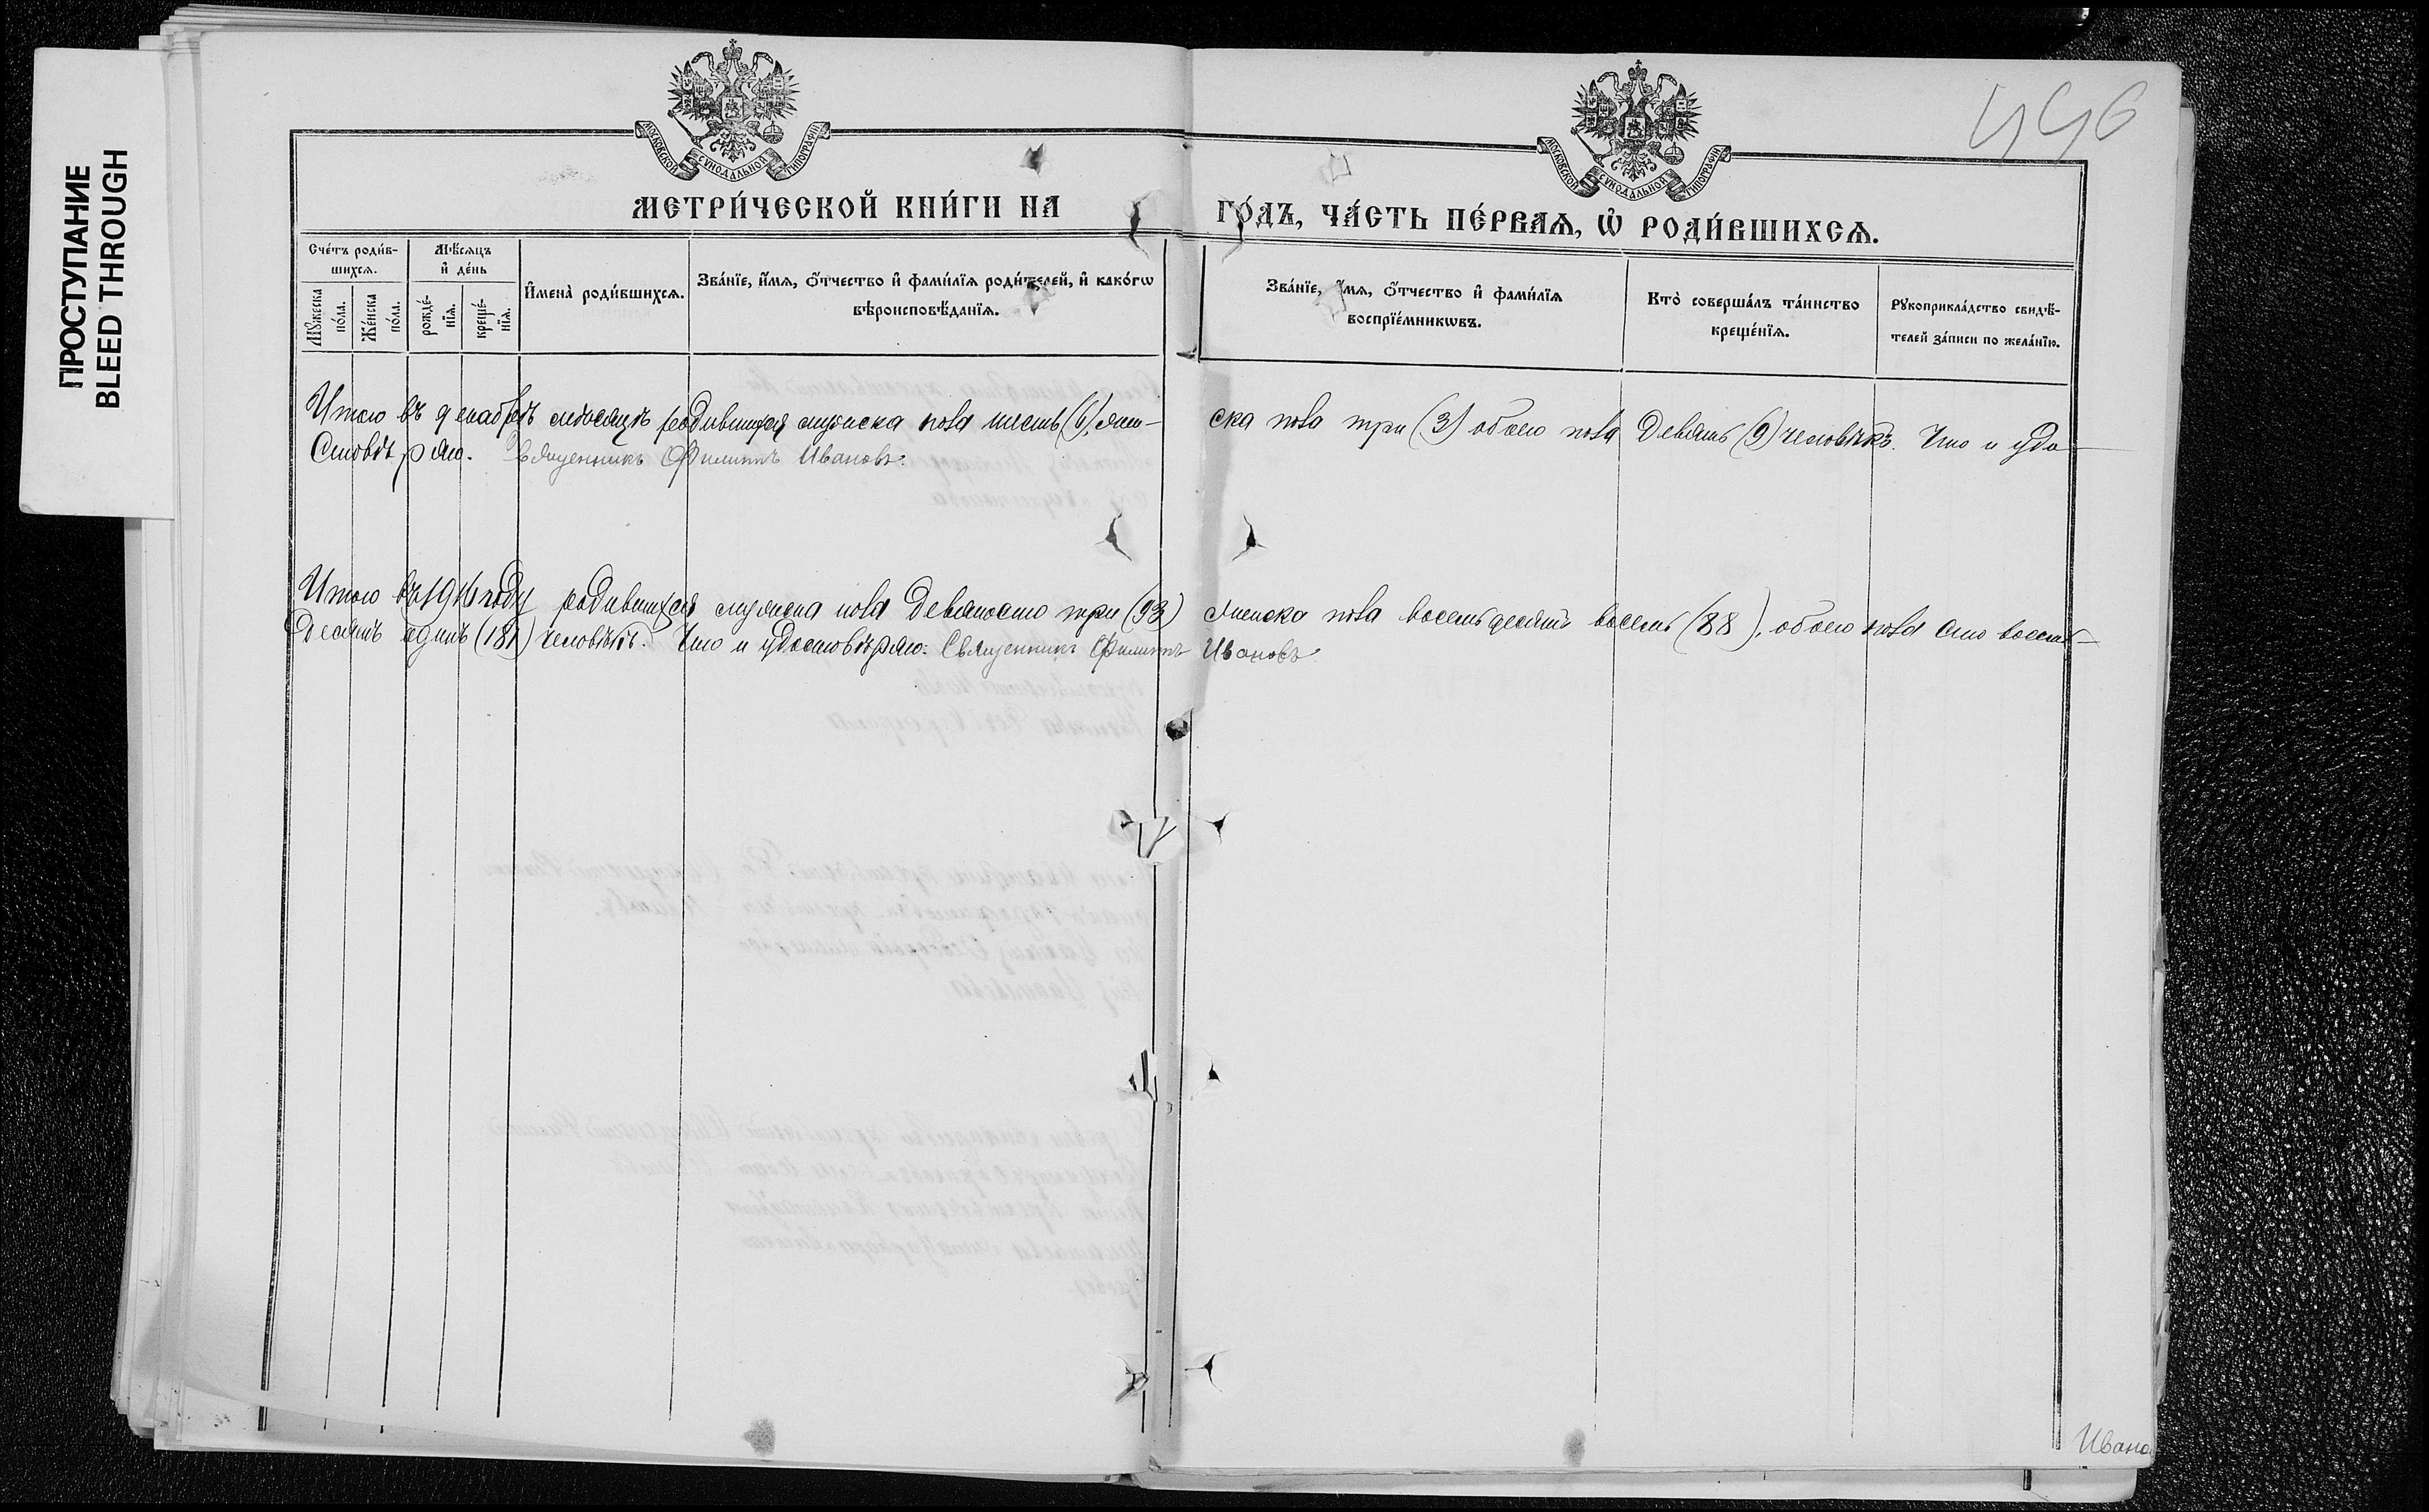 ПРОСТУПАНИЕ
BLEED THROUGH
446
МОСКОВСКОЙ СУНОДАЛЬНОЙ ТИПОГРАФІИ
МОСКОВСКОЙ СУНОДАЛЬНОЙ ТИПОГРАФІИ
МЕТРИ́ЧЕСКОЙ КНИ́ГИ НА ГО́ДЪ, ЧА́СТЬ ПЕ́РВАѦ, Ѡ҆ РОДИ́ВШИХСѦ.
Сче́тъ роди́в-
шихсѧ.
Мꙋ́жеска по́ла.
Же́нска по́ла.
Мѣ́сѧцъ и҆ де́нь
рожде́-нїѧ.
креще́-нїѧ.
И҆мена̀ роди́вшихсѧ.
Зва́нїе, и҆́мѧ, ѻ҆́тчество и҆ фами́лїѧ роди́телей, и҆ како́гѡ
вѣроисповѣ́данїѧ.
Зва́нїе, и҆́мѧ, ѻ҆́тчество и҆ фами́лїѧ
воспрїе́мникѡвъ.
Кто̀ соверша́лъ та́инство
креще́нїѧ.
Рꙋкоприкла́дство свидѣ́-
телей за́писи по жела́нїю.
Итого въ декабрѣ мѣсяцѣ родившихся мужска пола шесть (6), жен-ска пола три (3) обоего пола девять (9) человѣкъ. Что и удо-
стовѣряю. Священникъ Филиппъ Ивановъ.
Итого въ 1916 году родившихся мужска пола девяносто три (93) женска пола восемьдесятъ восемь (88), обоего пола сто восемь-
десятъ одинъ (181) человѣкъ. Что и удостовѣряю. Священникъ Филиппъ Ивановъ
Ивано